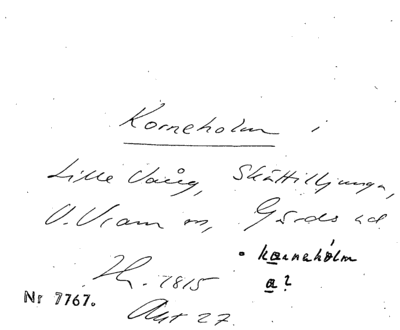 Korneholm i
Lille Vång, Skättilljunga,
V. Vram sn, Gärds hd
• karneholm
Nr 7767.
1815
a?
Akt 27